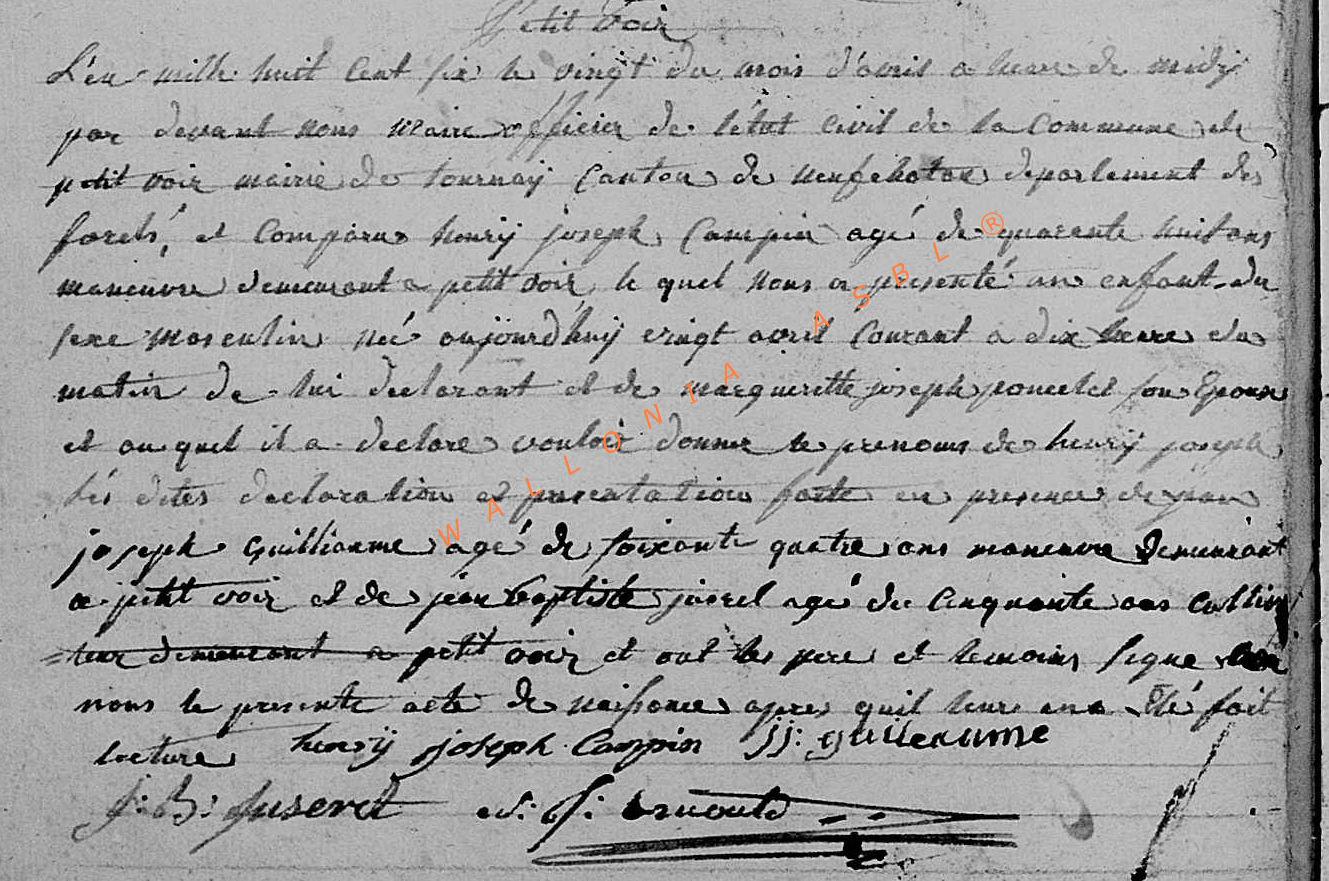 Petit Voir
L'en mille huit Cent six le vingt du mois d'avris a heure de midy
par devant nous maire officier de l'état Civil de la Commune de
petit voir mairie de tournay Canton de neufchatau departement des
forets, et Comparu henry joseph Campin agé de quarante huit ans
maneuvre demeurant a petit voir, le quel nous a presenté un enfant du
sexe masculin né aujourd'huy vingt avril Courant a dix heure du
matin de lui declarant et de marguerette joseph poncelet son Epouse
et au quel il a declare vouloir donner le prenoms de henry joseph
les dites declaration et presentation faite en presence de jean
joseph Guillianme agé de soixante quatre ans maneuvre demeurant
a petit voir et de jean baptiste jusrel agé de Cinquante ans cultiva
teur demeurant a petit voir et ont les pere et temoins signe avec
nous le presente acte de naissance apres quil leure en a été fait
lecture henry joseph Campin jj: guilleaume
J: B: Juseret J: arnould
WALLONIA ASBL ®